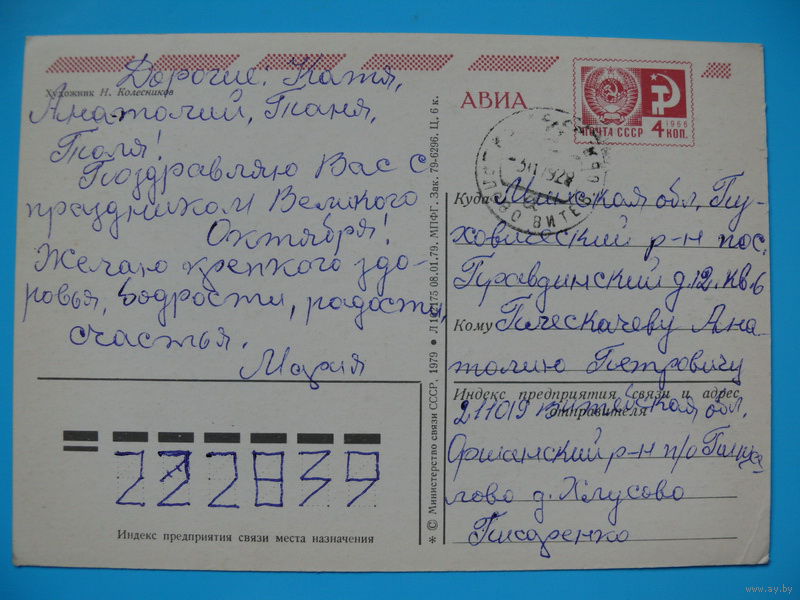 Художник Н. Колесников
Дорогие: Катя,
Анатолий, Таня,
Толя!
Поздравляю Вас с
праздником Великого
Октября!
Желаю крепкого здо-
ровья, бодрости, радости,
счастья.
Мария
222839
Индекс предприятия связи места назначения
* © Министерство связи СССР, 1979 ● 08.01.79. МПФГ. Зак. 79-6296. Ц. 6 к.
АВИА
ПОЧТА СССР
1966
4 КОП.
Куда Минская обл, Пу-
ховичский р-н пос.
Правдинский д.12. кв.6
Кому Плескачеву Ана-
толию Петровичу
Индекс предприятия связи и адрес
отправителя
211019 Витебская обл.
Оршанский р-н п/о
д. Хлусово
Писаренко
www.ay.by